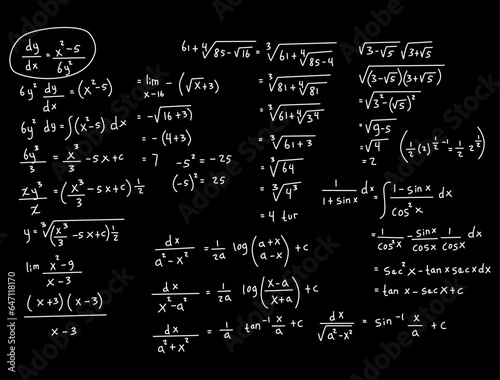 dy/dx = x²-5/6y²
6y² dy/dx = (x²-5)
6y² dy = ∫(x²-5) dx
6y³/3 = x³/3 - 5x+c
2y³/2 = (x³/3 - 5x+c) 1/2
y = ³√(x³/3 - 5x+c) 1/2
lim x²-9/x-3
(x+3)(x-3)/x-3
= lim x-16 - (√x+3)
= -√16+3)
= - (4+3)
= 7
-5² = -25
(-5)² = 25
61+⁴√85-√16 = ³√61+⁴√85-4
= ³√81+⁴√81
= ³√61+⁴√3⁴
= ³√61+3
= ³√64
= ³√4³
= 4 tur
√3-√5 √3+√5
√(3-√5)(3+√5)
= √3²-(√5)²
= √9-5
= √4
= 2
(1/2(2)^1/2 -1 = 1/2 2^1/2)
1/1+sinx dx = ∫ 1-sinx/cos²x dx
= 1/cos²x - sinx/cosx 1/cosx dx
= sec²x - tanx secxdx
= tan x - secx+c
dx/a²-x² = 1/2a log(a+x/a-x) +c
dx/x²-a² = 1/2a log(x-a/x+a) +c
dx/a²+x² = 1/a tan⁻¹ x/a +c
dx/√a²-x² = sin⁻¹ x/a +c
Adobe Stock | #647118170